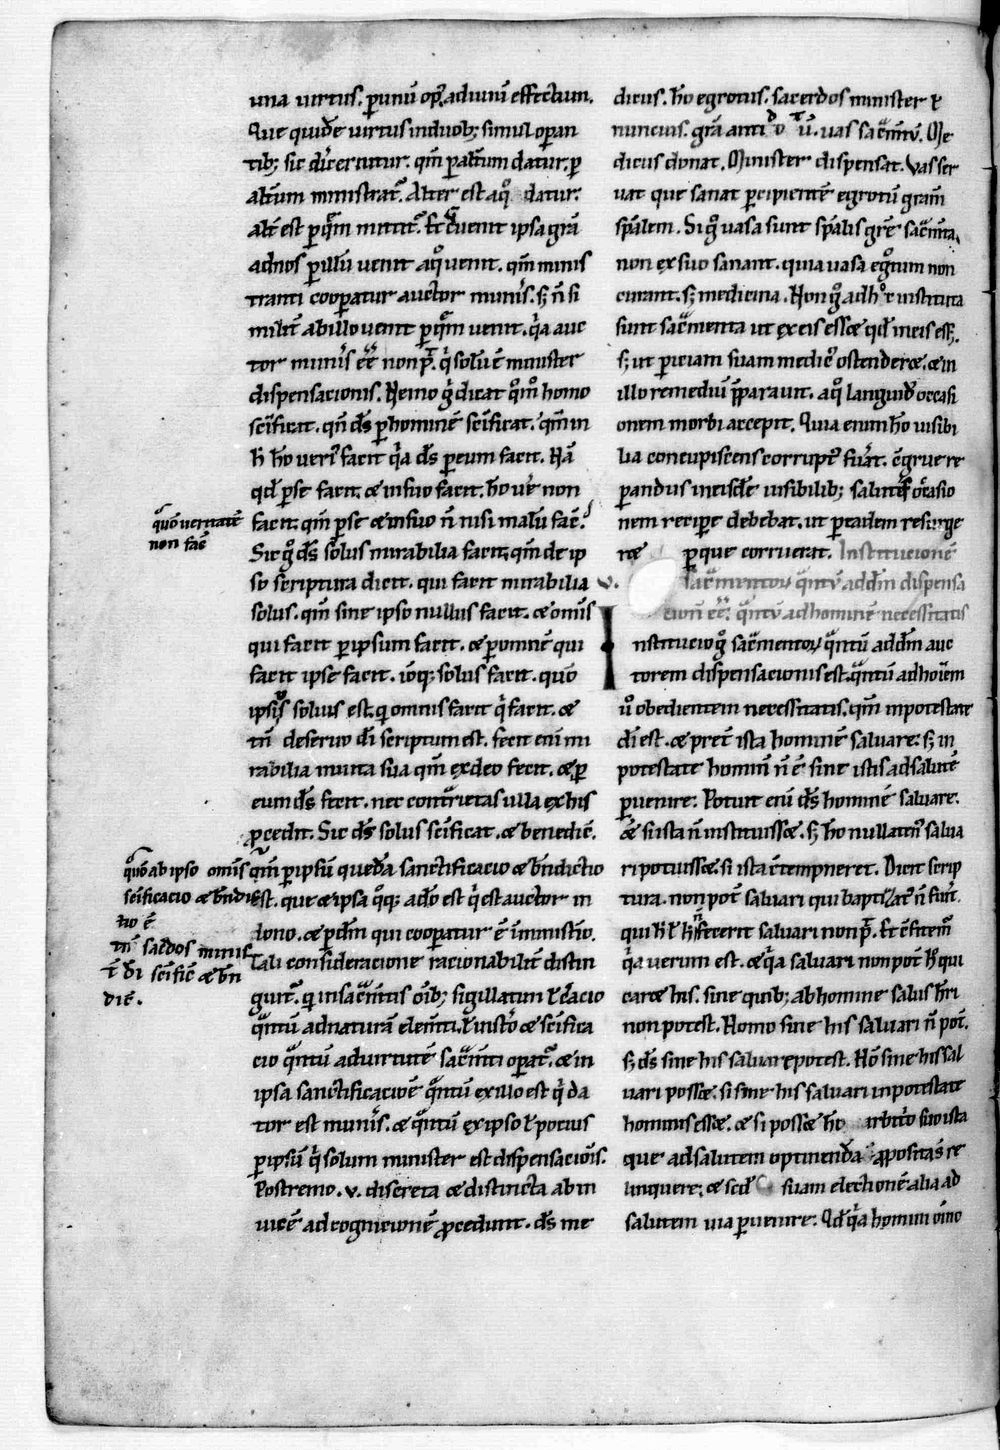 una uirtus. p̱ unū op̱ˀ ad unū effectum.
Que quidē uirtus in duob; simul op̱an
tib; sic dr̄ cerni tur. qm̄ p̱ alt̄um datur. p̱
alt̄um ministrat̄. Alter est a qͦ datur.
alt̄ est p̱ qm̄ mittit̄. Et cū uenit ipsa grā
ad nos p̱ illū uenit a qͦ uenit. qm̄ minis
tranti coop̱atur auctor mun̄is. s; n̄ si
milit̄ ab illo uenit p̱ qm̄ uenit. qͥa auc
tor mun̄is eē non p̄t. qͥ solū ē minister
dispensacionis. Nemo gͥ dicat qͦmͦ homo
sc̄ificat. qn̄ dˉs p̱ hominē sc̄ificat. qm̄ in
h̄ hō uerī facit qͥa dˉs p̱ eum facit. Nā
qd̄ p̱ se facit. & in suo facit. hō uē non
facit. qm̄ p̱ se & in suo n̄ nisi malū fac̄.
Sic gͦ dˉs solus mirabilia facit. qm̄ de ip
so scriptura dicit. qui facit mirabilia
solus. qm̄ sine ipso nullus facit. & om̄is
qui facit p̱ ipsum facit. & p̱ omnē qui
facit ipse facit. iōq; solus facit. quō
ipsiꝰ solius est. qͥ omnis facit qͥ facit. &
tn̄ deseruo dī scriptum est. fecit enī mi
rabilia in uita sua qm̄ ex deo fecit. & p̱
eum dˉs fecit. nec cont̄rietas ulla ex his
p̱cedit. Sic dˉs solus sc̄ificat. & benedic̄.
qm̄ p̱ ipsū quedā sanctificacio & bn̄dictio
est. que & ipsa qͦq; a dō est qͥ est auctor in
dono. & p̱ dm̄ qui coop̱atur ē in ministͦio.
Tali consideracione racionabilit̄ distin
guit̄. qͥ in sac̄mtis oīb; sigillatim
qͣntū ad naturā elem̄ti. & sc̄ifica
cio qͣntū ad uirtutē sac̄mti op̱at̄. & in
ipsa sanctificacionē qͣntū ex illo est qͥ da
tor est mun̄is. & qͣntū ex ipso ł pocius
p̱ ipsū qͥ solum minister est dispensacioīs.
Postremo. v. discreta & distincta ab in
uicē ad cognicionē p̱cedunt. dˉs me
quō ueritatē
non fac̄
quō ab ipso om̄is
sc̄ificacio & bn̄dic
tio ē
tn̄ sac̄dos minis
t̄ dī sc̄ific̄ & bn̄
dic̄.
dicus. hō egrotus. sacerdos minister &
nuncius. grā anti dͦotū. uas sac̄mtū. Me
dicus donat. Minister dispensat. Vas ser
uat que sanat p̱cipientē egrotū gram̄
sp̄alem. Si gͦ uasa sunt sp̄alis grē sac̄mta.
non ex suo sanant. quia uasa eg̊tum non
curant. s; medicina. Non gͦ ad hͦ instituta
sunt sac̄menta ut ex eis ess& qd̄ in eis ess;.
s; ut p̱iciam suam medicꝰ ostender&. & in
illo remediū p̄pararaut. a qͦ languidꝰ occasi
onem morbi accepit. Quia enim hō uisibi
lia concupiscens corruptꝰ fūat. c̄grue re
p̱andus in eisdē uisibilib; salutis occasio
nem recip̱e debebat. ut p̱ eadem resurge
r& p̱ que corruerat. Institucionē
v. sac̄mentoꝝ qͣntū ad dm̄ dispensa
cionis eē. qͣntū ad hominē necessitatis
Institucio gͦ sac̄mentoꝝ qͣntū ad dm̄ auc
torem dispensacionis est. qͣntū ad hoīem
uͦ obedientem necessitatis. qm̄ in potestate
dī est. & pret̄ ista hominē saluare. s; in
potestate homin̄ n̄ ē sine istis ad salutē
p̱uenire. Potuit enī dˉs hominē saluare.
& si ista n̄ instituiss&. s; hō nullatenꝰ salua
ri potuiss&. si ista c̄tempneret. Dicit scrip
tura. non pot̄ saluari qui baptizatꝰ n̄ fūit.
qui h̄ ł h̄ n̄ fecerit saluari non p̄t. Et c̄fitem̄
qͥa uerum est. & qͥa saluari non pot̄ h̄ qui
car& his. sine quib; ab homine salus h̄ri
non potest. Homo sine his saluari n̄ pot̄.
s; dˉs sine his saluare potest. Hō sine his sal
uari poss&. si sine his saluari in potestate
hominis ess&. & si poss& hō arbitͦio suo ista
que ad salutem optinendā p̱posita s̄ re
linquere: & scd̄ suam electionē alia ad
salutem uia p̱uenire. Qd̄ qͥa homini oīno